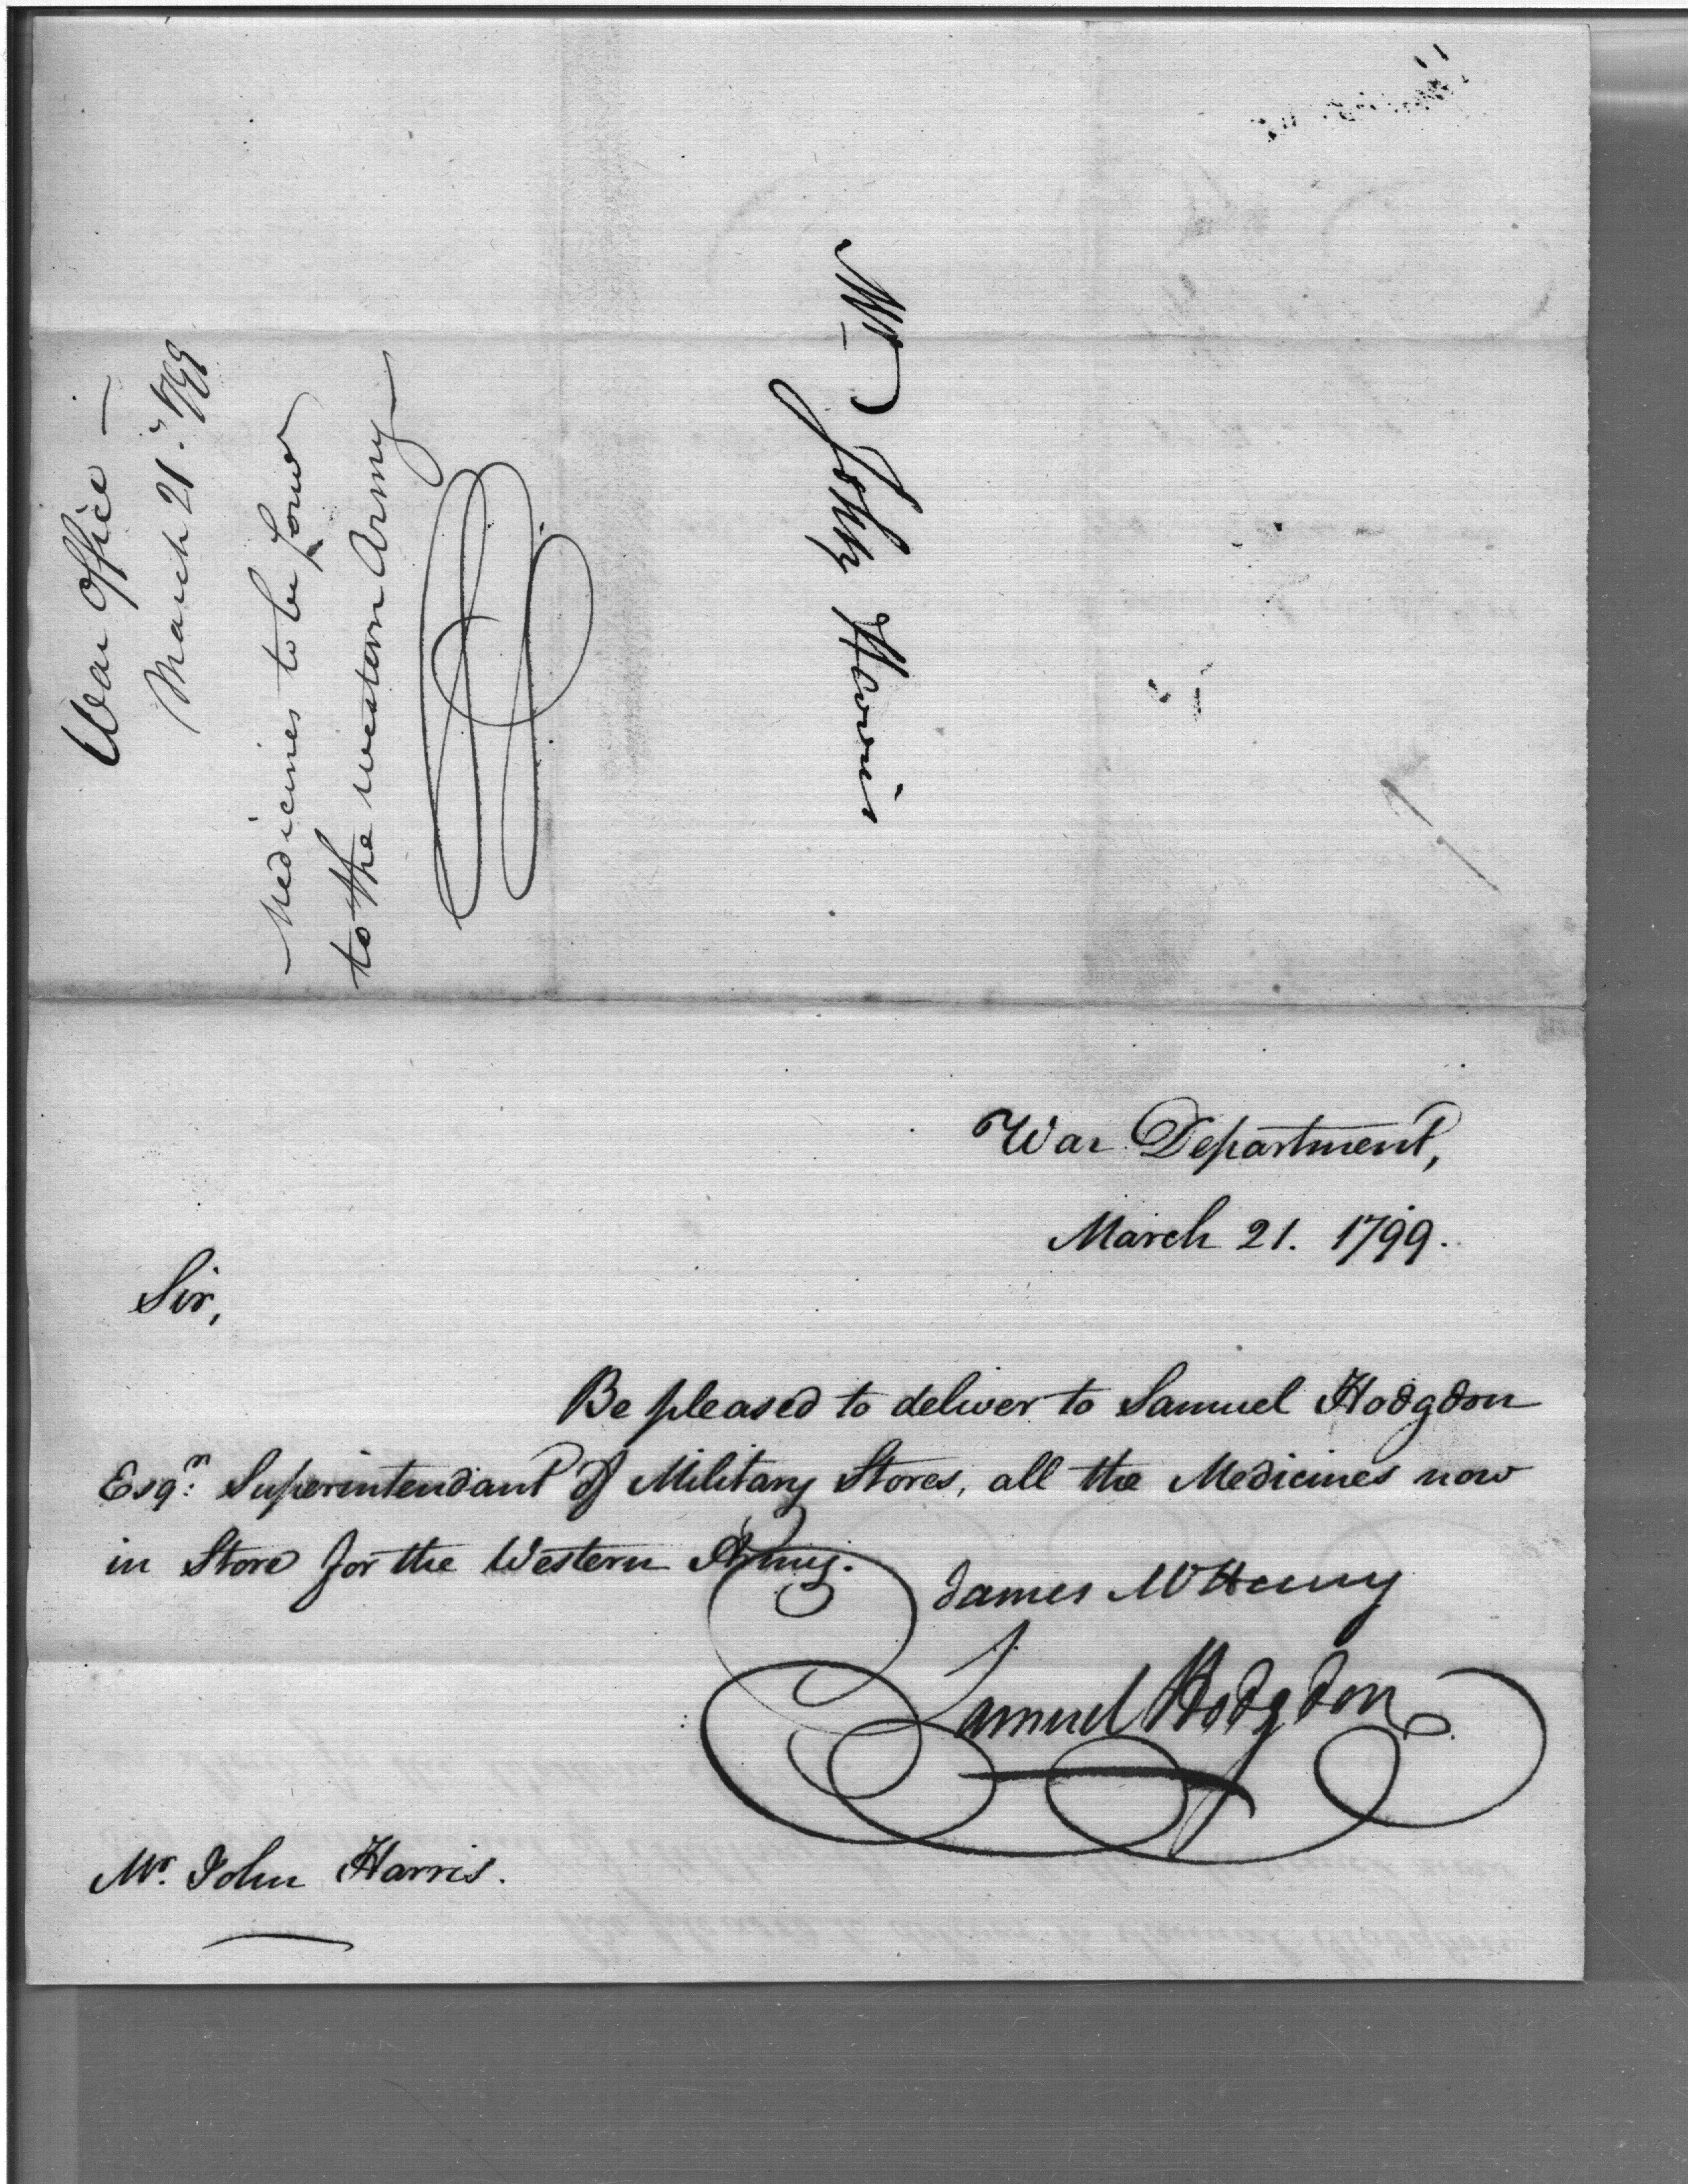 War Office —
March 21. 1799
Medicines to be
to the western Army
Mr John Harris
War Department,
March 21. 1799.
Sir,
Be pleased to deliver to Samuel Hodgdon
Esqr: Superintendant of Military Stores, all the Medicines now
in Store for the Western Army.
James McHenry
Samuel Hodgdon
Mr. John Harris.